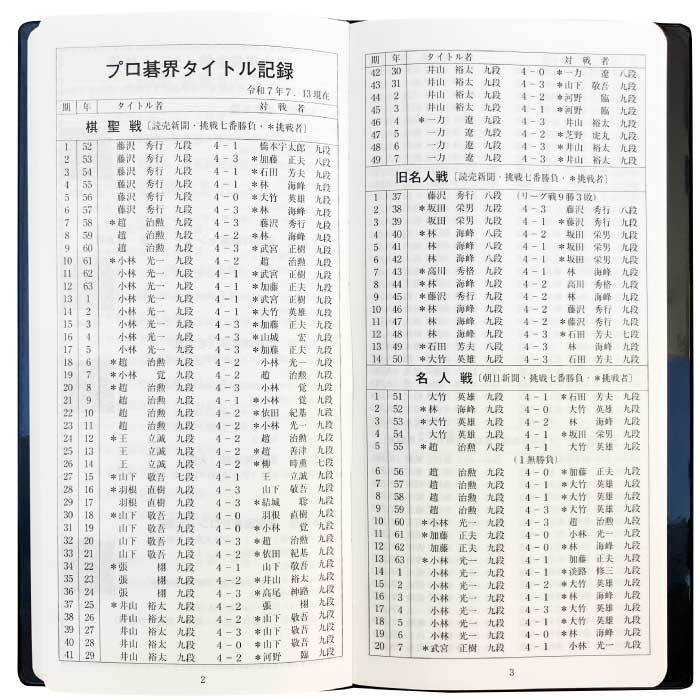 プロ碁界タイトル記録
令和7年7．13現在
期 年 タイトル者 対戦者
棋聖戦〔読売新聞・挑戦七番勝負・＊挑戦者〕
1 52 藤沢 秀行 九段 4－1 橋本宇太郎 九段
2 53 藤沢 秀行 九段 4－3 ＊加藤 正夫 八段
3 54 藤沢 秀行 九段 4－1 ＊石田 芳夫 九段
4 55 藤沢 秀行 九段 4－1 ＊林 海峰 九段
5 56 藤沢 秀行 九段 4－0 ＊大竹 英雄 九段
6 57 藤沢 秀行 九段 4－3 ＊林 海峰 九段
7 58 ＊趙 治勲 九段 4－3 藤沢 秀行 九段
8 59 趙 治勲 九段 4－2 ＊林 海峰 九段
9 60 趙 治勲 九段 4－3 ＊武宮 正樹 九段
10 61 ＊小林 光一 九段 4－2 趙 治勲 九段
11 62 小林 光一 九段 4－1 ＊武宮 正樹 九段
12 63 小林 光一 九段 4－1 ＊加藤 正夫 九段
13 1 小林 光一 九段 4－1 ＊武宮 正樹 九段
14 2 小林 光一 九段 4－1 ＊大竹 英雄 九段
15 3 小林 光一 九段 4－3 ＊加藤 正夫 九段
16 4 小林 光一 九段 4－3 ＊山城 宏 九段
17 5 小林 光一 九段 4－3 ＊加藤 正夫 九段
18 6 ＊趙 治勲 九段 4－2 小林 光一 九段
19 7 ＊小林 覚 九段 4－2 趙 治勲 九段
20 8 ＊趙 治勲 九段 4－3 小林 覚 九段
21 9 趙 治勲 九段 4－1 ＊小林 覚 九段
22 10 趙 治勲 九段 4－2 ＊依田 紀基 九段
23 11 趙 治勲 九段 4－2 ＊小林 光一 九段
24 12 ＊王 立誠 九段 4－2 趙 治勲 九段
25 13 王 立誠 九段 4－2 ＊趙 善津 九段
26 14 王 立誠 九段 4－2 ＊柳 時熏 七段
27 15 ＊山下 敬吾 七段 4－1 王 立誠 九段
28 16 ＊羽根 直樹 九段 4－3 山下 敬吾 九段
29 17 羽根 直樹 九段 4－3 ＊結城 聡 九段
30 18 ＊山下 敬吾 九段 4－0 羽根 直樹 九段
31 19 山下 敬吾 九段 4－0 ＊小林 覚 九段
32 20 山下 敬吾 九段 4－3 ＊趙 治勲 九段
33 21 山下 敬吾 九段 4－2 ＊依田 紀基 九段
34 22 ＊張 栩 九段 4－1 山下 敬吾 九段
35 23 張 栩 九段 4－2 ＊井山 裕太 九段
36 24 張 栩 九段 4－3 ＊高尾 紳路 九段
37 25 ＊井山 裕太 九段 4－2 張 栩 九段
38 26 井山 裕太 九段 4－2 ＊山下 敬吾 九段
39 27 井山 裕太 九段 4－3 ＊山下 敬吾 九段
40 28 井山 裕太 九段 4－0 ＊山下 敬吾 九段
41 29 井山 裕太 九段 4－2 ＊河野 臨 九段
2
期 年 タイトル者 対戦者
42 30 井山 裕太 九段 4－0 ＊一力 遼 八段
43 31 井山 裕太 九段 4－3 ＊山下 敬吾 九段
44 2 井山 裕太 九段 4－2 ＊河野 臨 九段
45 3 井山 裕太 九段 4－1 ＊河野 臨 九段
46 4 ＊一力 遼 九段 4－3 井山 裕太 九段
47 5 一力 遼 九段 4－2 ＊芝野 虎丸 九段
48 6 一力 遼 九段 4－3 ＊井山 裕太 九段
49 7 一力 遼 九段 4－3 ＊井山 裕太 九段
旧名人戦〔読売新聞・挑戦七番勝負・＊挑戦者〕
1 37 藤沢 秀行 八段 (リーグ戦9勝3敗)
2 38 ＊坂田 栄男 九段 4－3 藤沢 秀行 八段
3 39 坂田 栄男 九段 4－1 ＊藤沢 秀行 九段
4 40 ＊林 海峰 八段 4－2 坂田 栄男 九段
5 41 林 海峰 八段 4－1 ＊坂田 栄男 九段
6 42 林 海峰 八段 4－1 ＊坂田 栄男 九段
7 43 ＊高川 秀格 九段 4－1 林 海峰 九段
8 44 ＊林 海峰 九段 4－2 高川 秀格 九段
9 45 ＊藤沢 秀行 九段 4－2 林 海峰 九段
10 46 ＊林 海峰 九段 4－2 藤沢 秀行 九段
11 47 林 海峰 九段 4－2 ＊藤沢 秀行 九段
12 48 林 海峰 九段 4－3 ＊石田 芳夫 七段
13 49 ＊石田 芳夫 八段 4－3 林 海峰 九段
14 50 ＊大竹 英雄 九段 4－3 石田 芳夫 九段
名人戦〔朝日新聞・挑戦七番勝負・＊挑戦者〕
1 51 大竹 英雄 九段 4－1 ＊石田 芳夫 九段
2 52 ＊林 海峰 九段 4－0 大竹 英雄 九段
3 53 ＊大竹 英雄 九段 4－2 林 海峰 九段
4 54 大竹 英雄 九段 4－1 ＊坂田 栄男 九段
5 55 ＊趙 治勲 八段 4－1 大竹 英雄 九段
(1無勝負)
6 56 趙 治勲 九段 4－0 ＊加藤 正夫 九段
7 57 趙 治勲 九段 4－1 ＊大竹 英雄 九段
8 58 趙 治勲 九段 4－1 ＊大竹 英雄 九段
9 59 趙 治勲 九段 4－3 ＊大竹 英雄 九段
10 60 ＊小林 光一 九段 4－3 趙 治勲 九段
11 61 ＊加藤 正夫 九段 4－0 小林 光一 九段
12 62 加藤 正夫 九段 4－0 ＊林 海峰 九段
13 63 ＊小林 光一 九段 4－1 加藤 正夫 九段
14 1 小林 光一 九段 4－1 ＊淡路 修三 九段
15 2 小林 光一 九段 4－2 ＊大竹 英雄 九段
16 3 小林 光一 九段 4－1 ＊林 海峰 九段
17 4 小林 光一 九段 4－3 ＊大竹 英雄 九段
18 5 小林 光一 九段 4－1 ＊大竹 英雄 九段
19 6 小林 光一 九段 4－0 ＊林 海峰 九段
20 7 ＊武宮 正樹 九段 4－1 小林 光一 九段
3